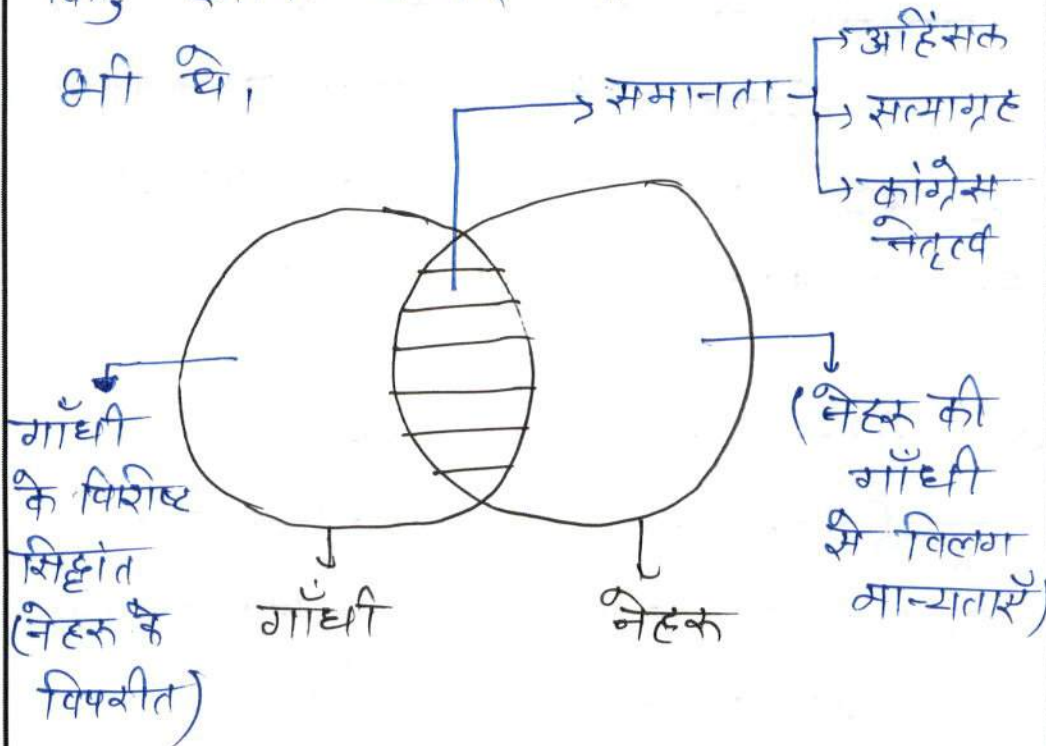 भी थे।
समानता
अहिंसक
सत्याग्रह
कांग्रेस
नेतृत्व
गाँधी
के विशिष्ट
सिद्धांत
(नेहरू के
विपरीत)
गाँधी
नेहरू
(नेहरू की
गाँधी
से विलग
मान्यताएँ)